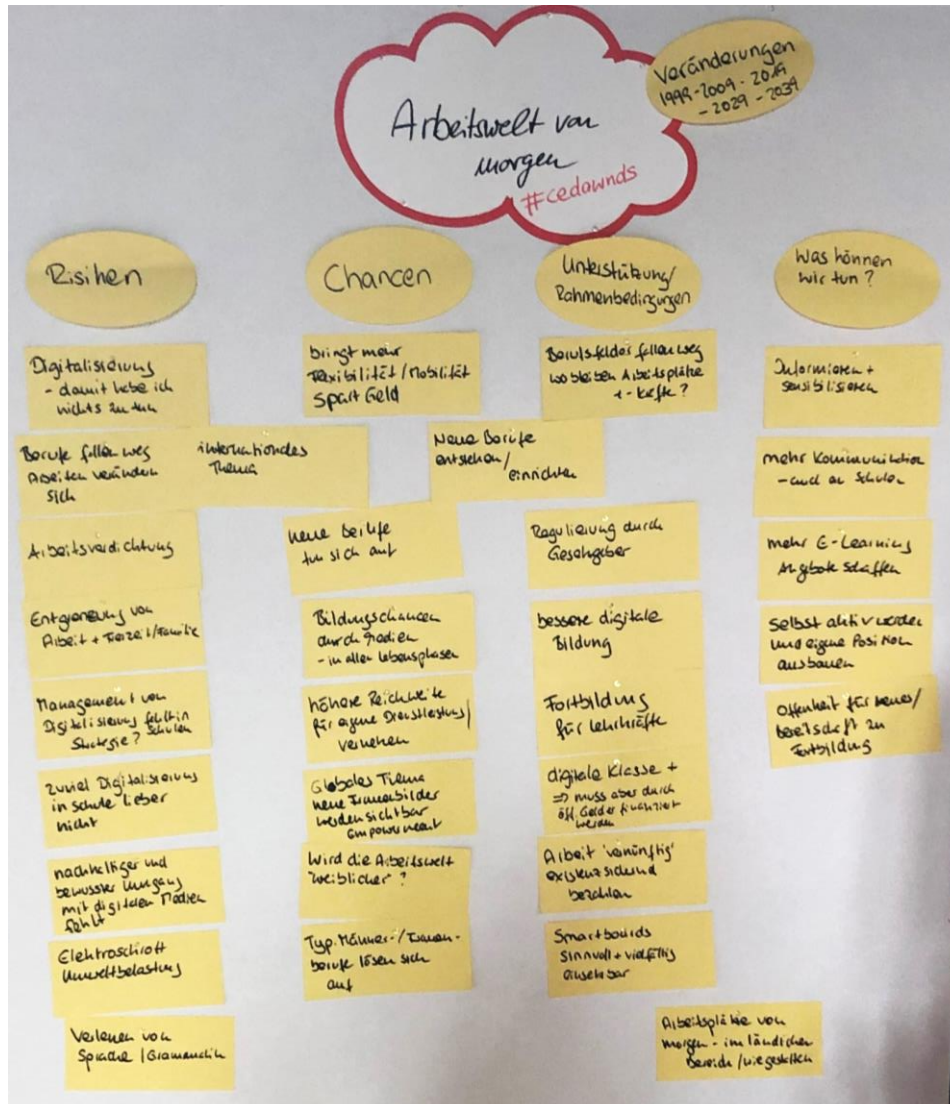 Arbeitswelt von
morgen
#cedawnds
Veränderungen
1999-2009-2019
- 2029 - 2039
Risiken
Digitalisierung
- damit habe ich
nichts zu tun
Berufe fallen weg
Arbeiten verändern
sich
internationales
Thema
Arbeitsverdichtung
Entgrenzung von
Arbeit + Freizeit/Familie
Management von
Digitalisierung fehlt in
Strategie? Schulen
zuviel Digitalisierung
in Schule lieber
nicht
nachhaltiger und
bewusster Umgang
mit digitalen Medien
fehlt
Elektroschrott
Umweltbelastung
Verlernen von
Sprache / Grammatik
Chancen
bringt mehr
Flexibilität / Mobilität
spart Geld
Neue Berufe
entstehen/
einrichten
neue Berufe
tun sich auf
Bildungschancen
durch Medien
- in allen Lebensphasen
höhere Reichweite
für eigene Dienstleistung/
Globales Thema
neue Frauenbilder
werden sichtbar
Empowerment
Wird die Arbeitswelt
"weiblicher"?
Typ. Männer-/Frauen-
berufe lösen sich
auf
Unterstützung/
Rahmenbedingungen
Berufsfelder fallen weg
wo bleiben Arbeitsplätze
+ - kräfte?
Regulierung durch
Gesetzgeber
bessere digitale
Bildung
Fortbildung
für Lehrkräfte
digitale Klasse +
=> muss aber durch
öff. Gelder finanziert
werden
Arbeit 'vernünftig'
existenzsichernd
bezahlen
Smartboards
sinnvoll + vielfältig
einsetzbar
Arbeitsplätze von
morgen - im ländlichen
Bereich / wie gestalten
Was können
wir tun?
Informieren +
sensibilisieren
mehr Kommunikation
- auch an Schulen
mehr E-Learning
Angebote schaffen
selbst aktiv werden
und eigene Position
ausbauen
Offenheit für Neues/
Bereitschaft zu
Fortbildung